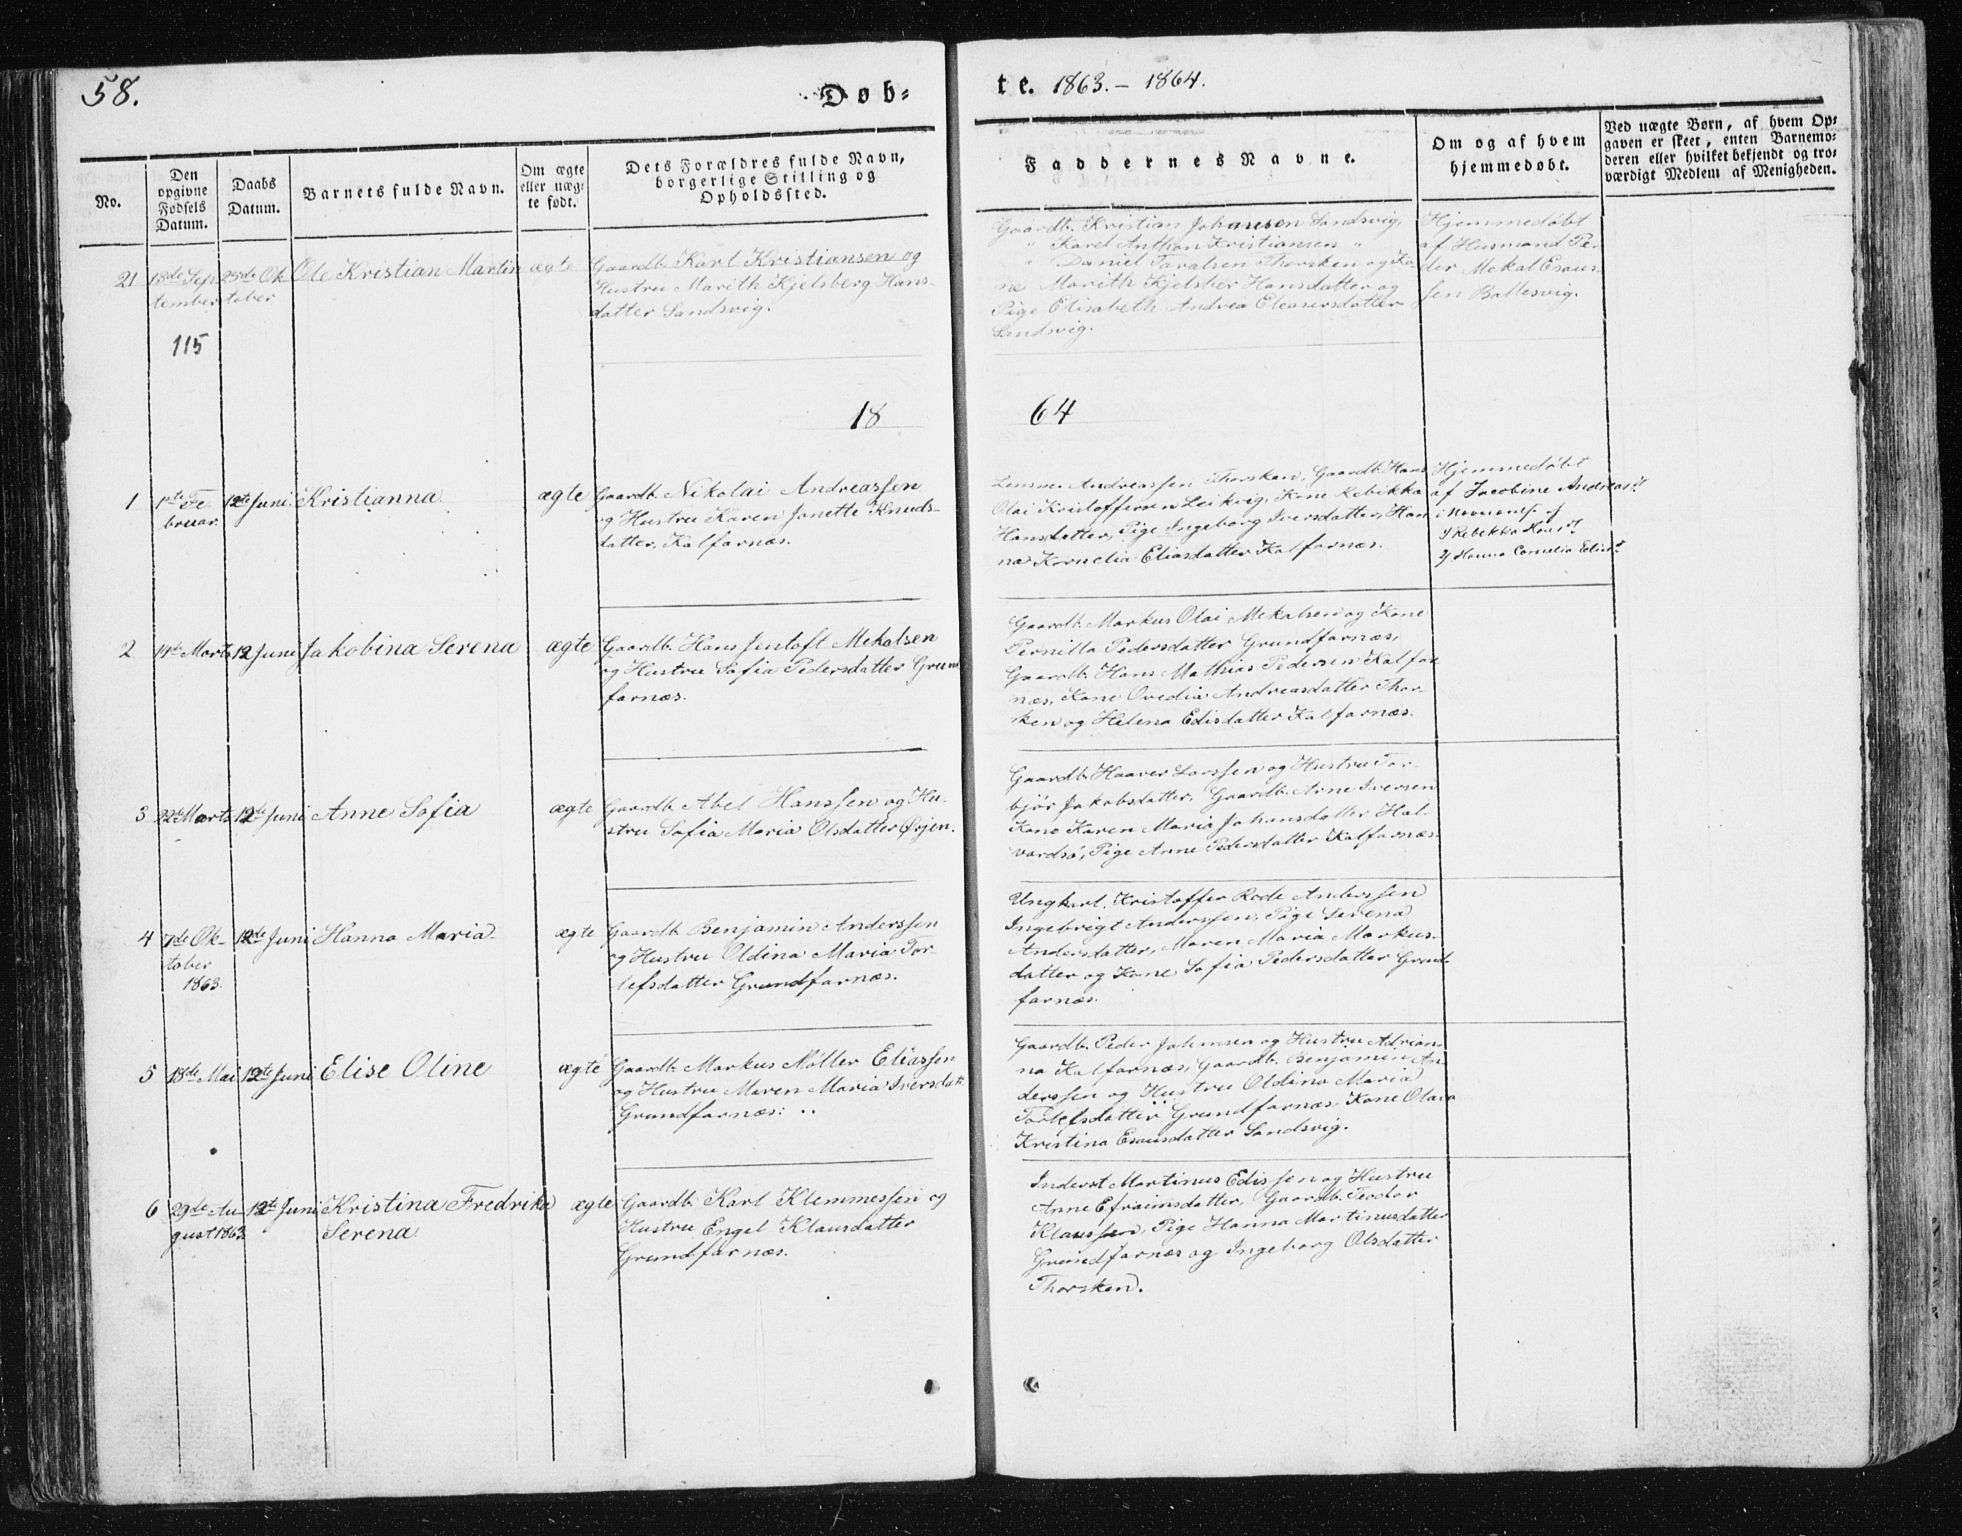 58.
Døb-
te. 1863. - 1864.
No.
Den
opgivne
Fødsels
Datum.
Daabs
Datum.
Barnets fulde Navn.
Om ægte
eller uæg-
te født.
Dets Forældres fulde Navn,
borgerlige Stilling og
Opholdssted.
Faddernes Navne.
Om og af hvem
hjemmedøbt.
Ved uægte Børn, af hvem Op-
gaven er skeet, enten Barnemo-
deren eller hvilket bekjendt og tro-
værdigt Medlem af Menigheden.
21
18de Sep
tember
115
25de Ok
tober
Ole Kristian Martin
ægte
Gaardb. Karl Kristiansen og
Hustru Marith Kjelsberg Hans-
datter Sandsvig.
Gaardb. Kristian Johansen Sandsvig,
" Karel Anthon Kristiansen "
" Daniel Taralsen Thorsken og Ko-
ne Marith Kjelsber Hansdatter og
Pige Elisabeth Andrea Eleasersdatter
Sandsvig.
Hjemmedøbt
af Husmand Pe-
der Mekal Esaus-
sen Ballesvig.
18
64
1
1ste Fe
bruar.
12te Juni
Kristianna
ægte
Gaardb. Nikolai Andreassen
og Hustru Karen Janette Knuds-
datter, Kalfarnæs.
Andreassen Thorsken, Gaardb. Hans
Olai Kristoffersen Leikvig, Kone Rebikka
Hansdatter, Pige Ingeborg Iversdatter, Han
na Kornelia Eliasdatter Kalfarnæs.
Hjemmedøbt
af Jacobine Andreasdr
i Nærværelse af
1/ Rebekka Hansdr
2/ Hanna Cornelia Eliasdr
2
14de Marts
12 Juni
Jakobina Serena
ægte
Gaardb. Hans Jentoft Mekalsen
og Hustru Sofia Pedersdatter Grund
farnæs.
Gaardb. Markus Olai Mekalsen og Kone
Pernilla Pedersdatter Grundfarnæs,
Gaardb. Hans Mathias Pedersen Kalfar
næs, Kone Ovedia Andreasdatter Thor-
sken og Helena Edisdatter Kalfarnæs.
3
22de Marts
12te Juni
Anne Sofia
ægte
Gaardb. Abel Hanssen og Hu-
stru Sofia Maria Olsdatter Ørjen.
Gaardb. Haaver Larssen og Hustru Tor-
bjør Jakobsdatter, Gaardb. Arne Iversen
Kone Karen Maria Johansdatter Hal-
vardsø, Pige Anne Pedersdatter Kalfarnæs
4
7de Ok-
tober
1863.
12de Juni
Hanna Maria
ægte
Gaardb. Benjamin Anderssen
og Hustru Oldina Maria Tor-
lefsdatter Grundfarnæs.
Ungkarl Kristoffer Rode Anderssen
Ingebrigt Anderssen, Pige Serena
Andersdatter, Maren Maria Markus-
datter og Kone Sofia Pedersdatter Grund-
farnæs.
5
18de Mai
12te Juni
Elise Oline
ægte
Gaardb. Markus Møller Eliassen
og Hustru Maren Maria Iversdatt.
Grundfarnæs.
Gaardb. Peder Johnsen og Hustru Adrian-
na Kalfarnæs, Gaardb. Benjamin An-
derssen og Hustru Oldina Maria
Torlefsdatter Grundfarnæs, Kone Olava
Kristina Esausdatter Sandsvig.
6
29de Au-
gust 1863
12te Juni
Kristina Fredrika
Serena
ægte
Gaardb. Karl Klemmessen og
Hustru Engel Klausdatter
Grundfarnæs.
Inderst Martinus Edissen og Hustru
Anne Efraimsdatter, Gaardb. Teodor
Klaussen, Pige Hanna Martinusdatter
Grundfarnæs og Ingeborg Olsdatter
Thorsken.